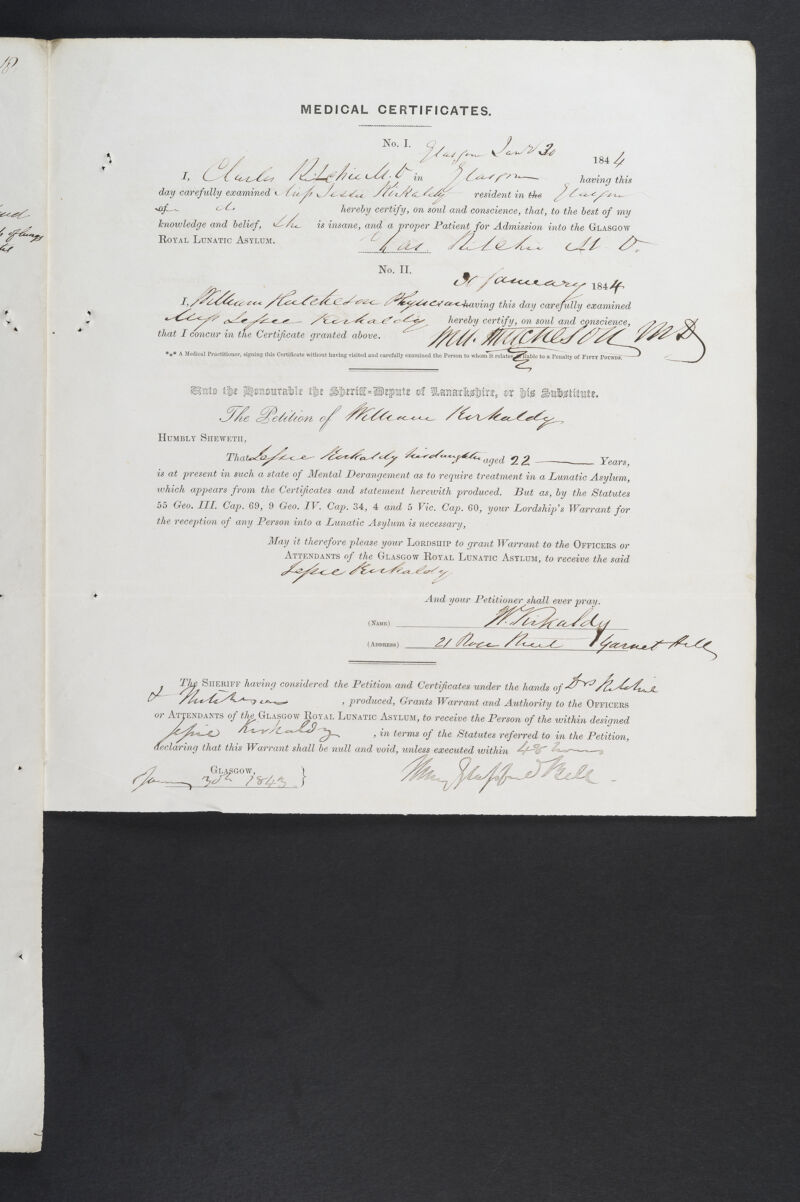 MEDICAL CERTIFICATES.
No. I. Glasgow Jany 30 1844
I, Charles Ritchie M.D in Glasgow having this
day carefully examined Miss Jessie Kirkaldy resident in the Glasgow
of do hereby certify, on soul and conscience, that, to the best of my
knowledge and belief, she is insane, and a proper Patient for Admission into the GLASGOW
ROYAL LUNATIC ASYLUM. Chas Ritchie M.D.
No. II.
30 January 1844
I, William Hutcheson Physician having this day carefully examined
Miss Jessie Kirkaldy hereby certify, on soul and conscience,
that I concur in the Certificate granted above. Wm. Hutcheson MD
*** A Medical Practitioner, signing this Certificate without having visited and carefully examined the Person to whom it relates, is liable to a Penalty of FIFTY POUNDS.
Unto the Honourable the Sheriff-Depute of Lanarkshire, or his Substitute.
The Petition of William Kirkaldy
HUMBLY SHEWETH,
That Jessie Kirkaldy his daughter aged 22 Years,
is at present in such a state of Mental Derangement as to require treatment in a Lunatic Asylum,
which appears from the Certificates and statement herewith produced. But as, by the Statutes
55 Geo. III. Cap. 69, 9 Geo. IV. Cap. 34, 4 and 5 Vic. Cap. 60, your Lordship's Warrant for
the reception of any Person into a Lunatic Asylum is necessary,
May it therefore please your LORDSHIP to grant Warrant to the OFFICERS or
ATTENDANTS of the GLASGOW ROYAL LUNATIC ASYLUM, to receive the said
Jessie Kirkaldy
And your Petitioner shall ever pray.
(NAME) W. Kirkaldy
(ADDRESS) 21 Rose Street Garnet Hill
The SHERIFF having considered the Petition and Certificates under the hands of Drs Ritchie
& Hutcheson, produced, Grants Warrant and Authority to the OFFICERS
or ATTENDANTS of the GLASGOW ROYAL LUNATIC ASYLUM, to receive the Person of the within designed
Jessie Kirkaldy, in terms of the Statutes referred to in the Petition,
declaring that this Warrant shall be null and void, unless executed within 48 hours
GLASGOW, }
January 30th 1843. Henry Glassford Bell